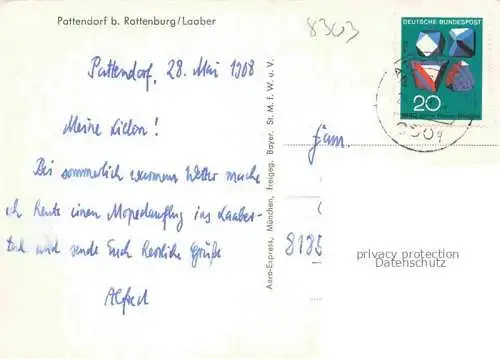 Pattendorf b. Rottenburg/Laaber
8303
DEUTSCHE BUNDESPOST
20
Pattendorf, 28. Mai 1968
Meine Lieben!
Bei sommerlich warmem Wetter mache
ich heute einen Mopedausflug ins Laaber-
tal und sende Euch herzliche Grüße
Alfred
Aero-Express, München, freigeg. Bayer. St. M. f. W. u. V.
Fam.
8185
privacy protection
Datenschutz